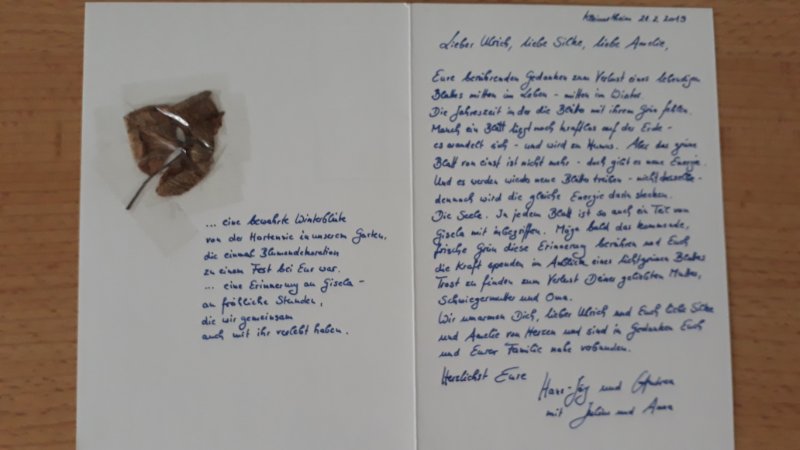 ... eine bewahrte Winterblüte
von der Hortensie in unserem Garten,
die einmal Blumendekoration
zu einem Fest bei Eur war.
... eine Erinnerung an Gisela -
an fröhliche Stunden,
die wir gemeinsam
auch mit ihr verlebt haben.
Kleinostheim 21.2.2019
Lieber Ulrich, liebe Silke, liebe Amelie,
Eure berührenden Gedanken zum Verlust eines lebendigen
Blattes mitten im Leben - mitten im Winter.
Die Jahreszeit in der die Blätter mit ihrem Grün fehlen.
Manch ein Blatt liegt noch kraftlos auf der Erde -
es wandelt sich - und wird zu Humus. Aber das grüne
Blatt von einst ist nicht mehr - doch gibt es neue Energie.
Und es werden wieder neue Blätter treiben - nicht dasselbe -
dennoch wird die gleiche Energie darin stecken.
Die Seele. In jedem Blatt ist so auch ein Teil von
Gisela mit inbegriffen. Möge bald das kommende,
frische Grün diese Erinnerung berühren und Euch
die Kraft spenden im Anblick eines lichtgrünen Blattes
Trost zu finden zum Verlust Deiner geliebten Mutter,
Schwiegermutter und Oma.
Wir umarmen Dich, lieber Ulrich und Euch liebe Silke
und Amelie von Herzen und sind in Gedanken Euch
und Eurer Familie nahe verbunden.
Herzlichst Eure
Hans-Jörg und Andrea
mit Julius und Anna